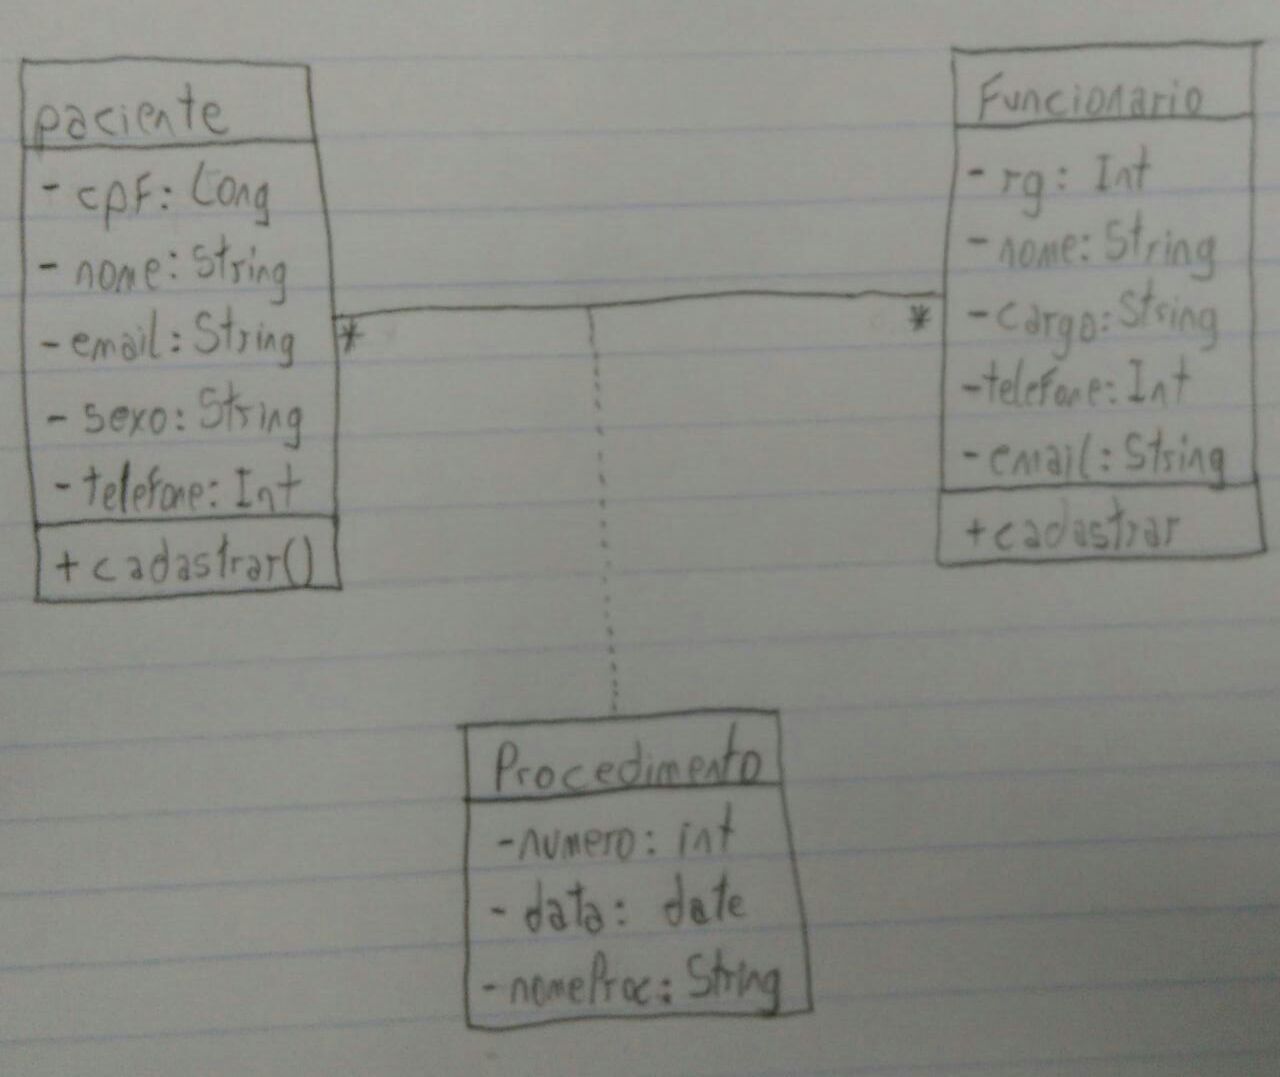 paciente
- cpf: Long
- nome: String
- email: String
- sexo: String
- telefone: Int
+ cadastrar()
*
*
Funcionario
- rg: Int
- nome: String
- cargo: String
- telefone: Int
- email: String
+ cadastrar
Procedimento
- numero: int
- data: date
- nomeProc: String